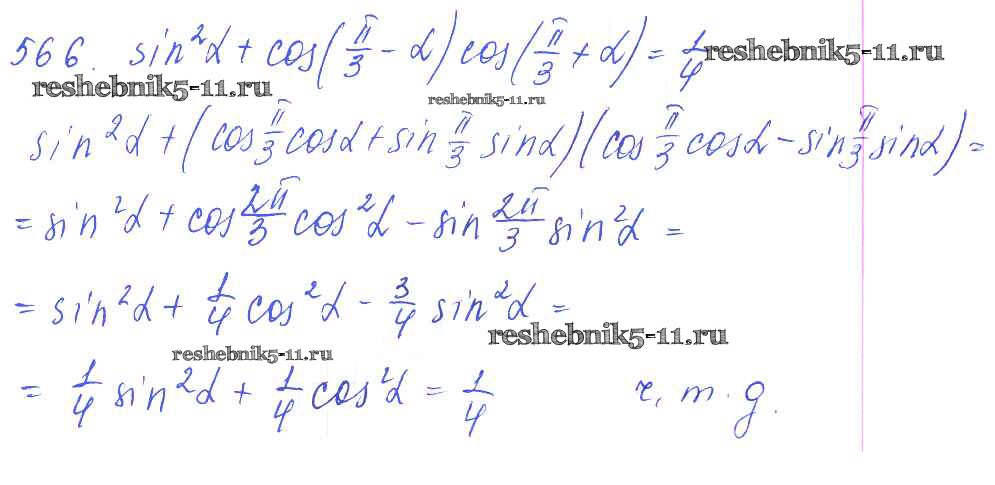 566. sin²α + cos(π/3 - α) cos(π/3 + α) = 1/4 reshebnik5-11.ru
reshebnik5-11.ru reshebnik5-11.ru
sin²α + (cos π/3 cosα + sin π/3 sinα)(cos π/3 cosα - sin π/3 sinα) =
= sin²α + cos 2π/3 cos²α - sin 2π/3 sin²α =
= sin²α + 1/4 cos²α - 3/4 sin²α =
reshebnik5-11.ru reshebnik5-11.ru
= 1/4 sin²α + 1/4 cos²α = 1/4 ч. т. д.